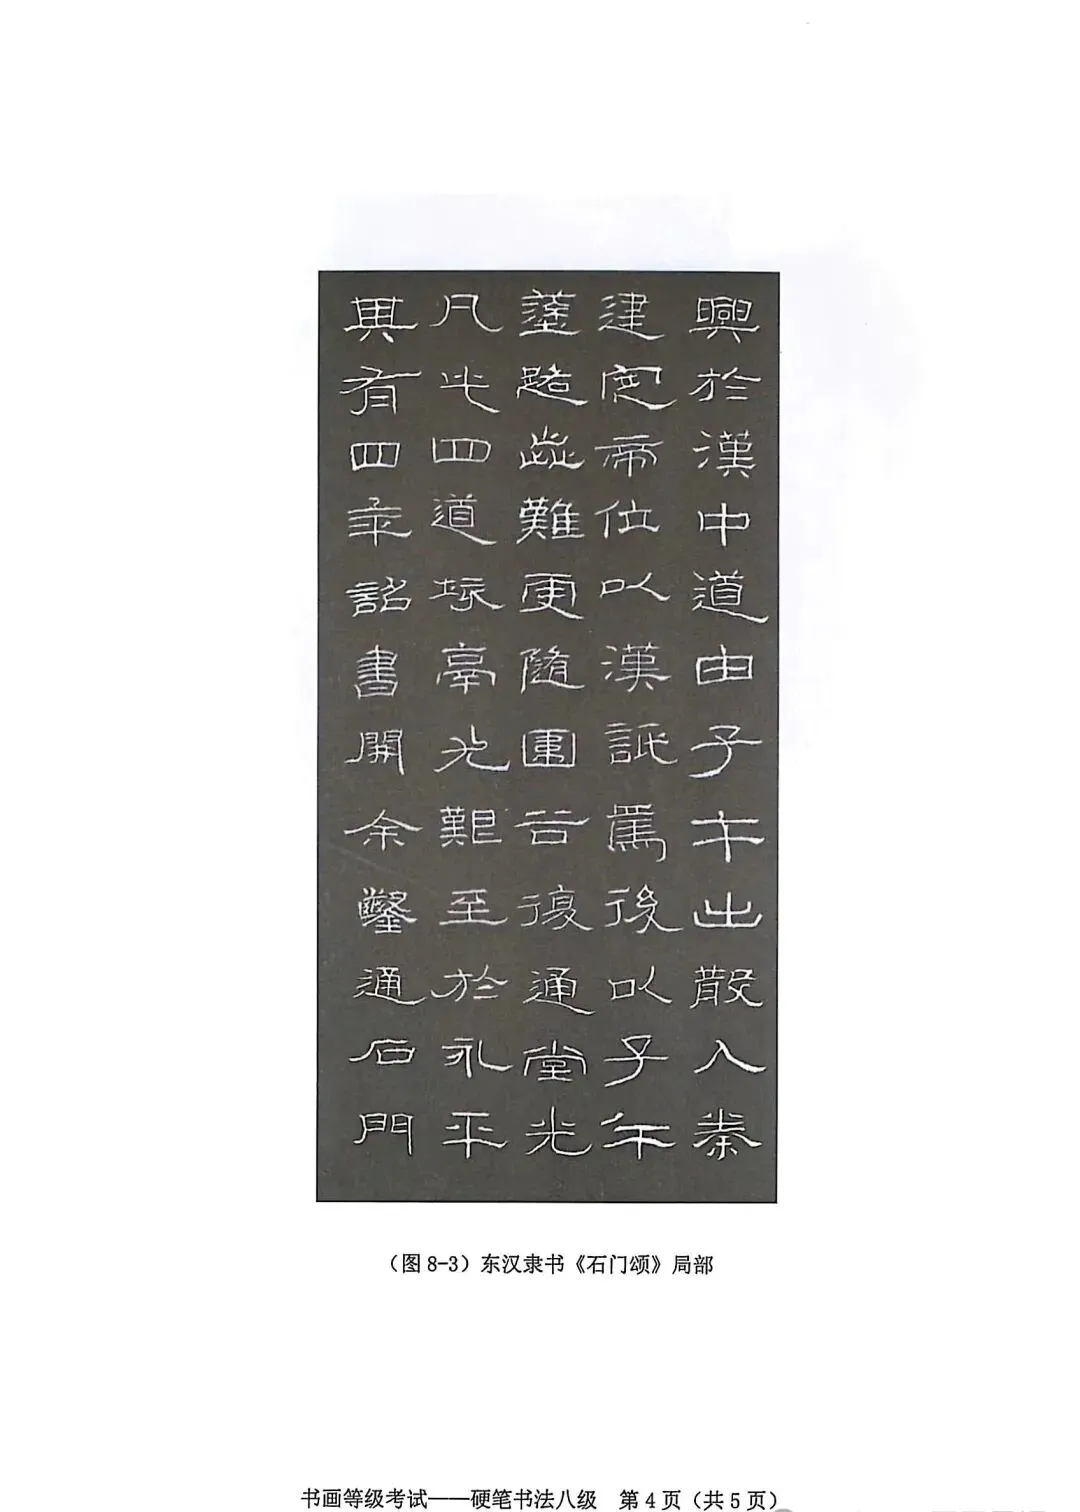 興於漢中道由子午出散入秦
建定帝位以漢詆焉後以子午
塗路歰難更隨圍谷復通堂光
凡此四道垓鬲尤艱至於永平
其有四年詔書開余鑿通石門
（图 8-3）东汉隶书《石门颂》局部
书画等级考试——硬笔书法八级 第 4 页（共 5 页）